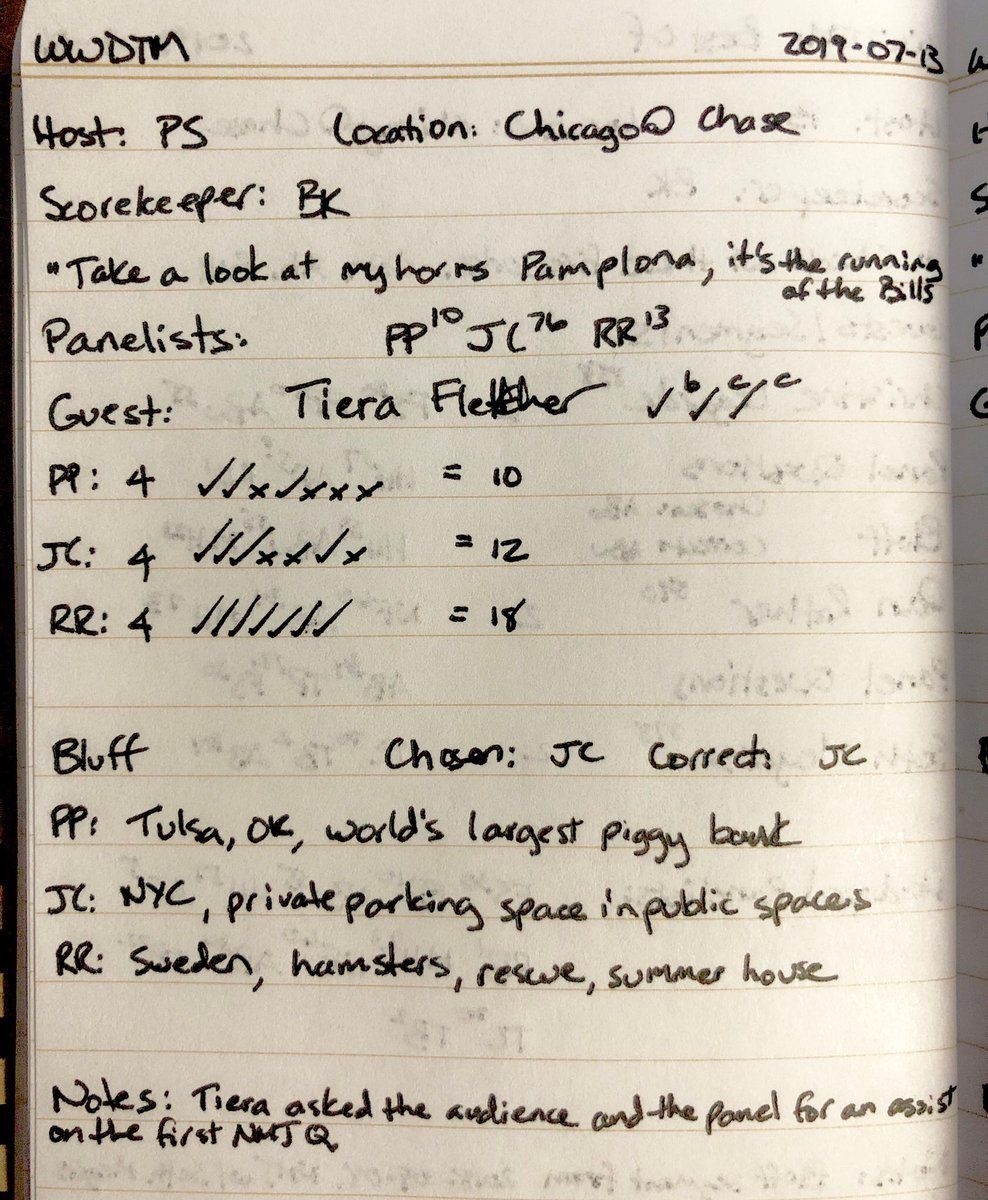 WWDTM 2019-07-13
Host: PS Location: Chicago @ Chase
Scorekeeper: BK
"Take a look at my horns Pamplona, it's the running
of the Bills
Panelists: PP10 JC76 RR13
Guest: Tiera Fletcher ✓b ✓c ✓c
PP: 4 ✓✓x✓xxx = 10
JC: 4 ✓✓✓xx✓x = 12
RR: 4 ✓✓✓✓✓✓✓ = 18
Bluff Chosen: JC Correct: JC
PP: Tulsa, OK, world's largest piggy bank
JC: NYC, private parking space in public spaces
RR: Sweden, hamsters, rescue, summer house
Notes: Tiera asked the audience and the panel for an assist
on the first NMJ Q